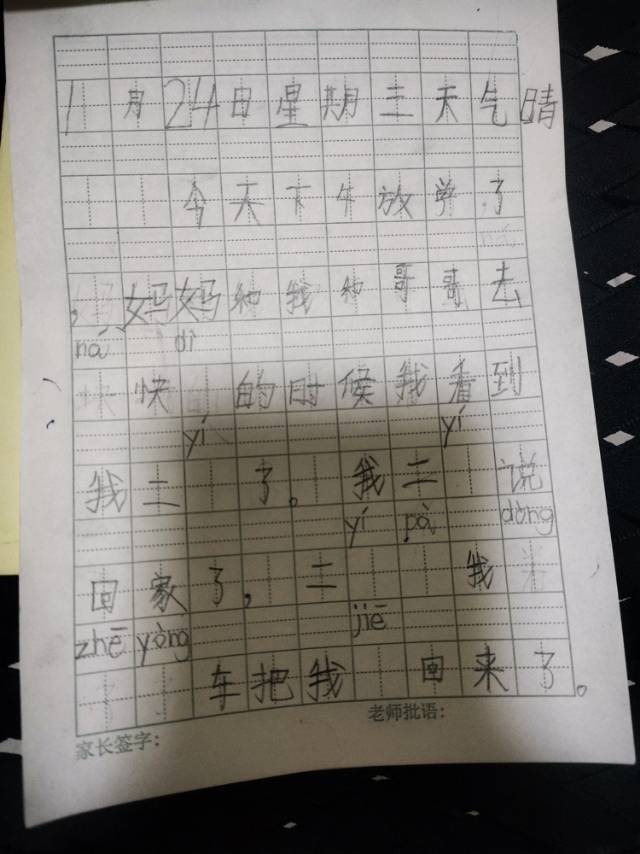 1月24日星期三天气晴
今天下午放学了
，妈妈和我和哥哥去
ná dì
快的时候我看到
yí yí
我二 了。 我二 说
yí pà dòng
回家了， 二 我
zhē yòng jiē
车把我 回来了。
老师批语：
家长签字：